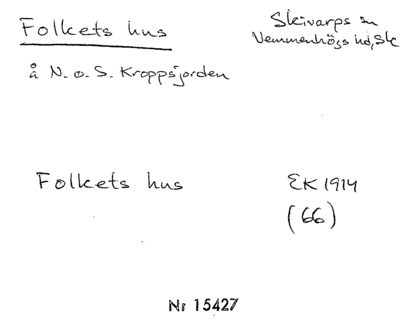 Folkets hus
Skivarps sn
Vemmenhögs hd, Sk
å N. o. S. Kroppsjorden
Folkets hus
EK 1914
(66)
Nr 15427